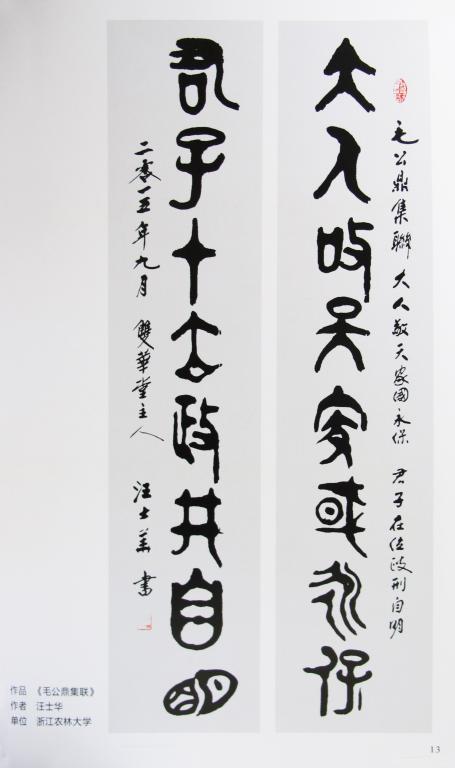 毛公鼎集聯 大人敬天家國永保 君子在位政刑自明
大人敬天家或永保
君子才立政井自明
二零一五年九月 雙華堂主人 汪士華書
作品 《毛公鼎集联》
作者 汪士华
单位 浙江农林大学
13